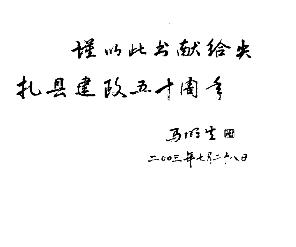 谨以此书献给尖
扎县建政五十周年
二〇〇三年七月二十八日